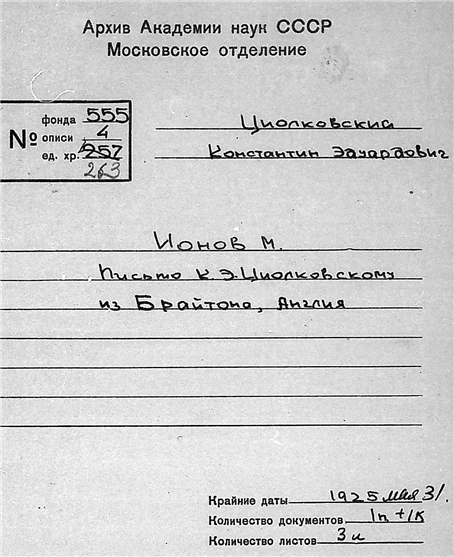 Архив Академии наук СССР
Московское отделение
№
фонда 555
описи 4
ед. хр. 257
263
Циолковский
Константин Эдуардович
Ионов М.
Письмо К.Э.Циолковскому
из Брайтона, Англия
Крайние даты 1925 мая 31.
Количество документов 1п+1к
Количество листов 3л